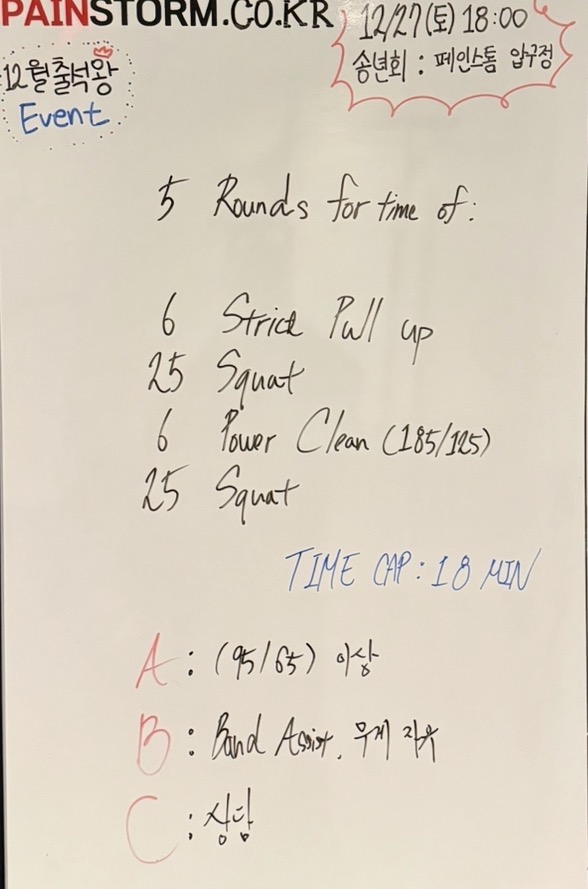 PAINSTORM.CO.KR
12/27(토) 18:00
송년회 : 페인스톰 압구정
12월출석왕
Event
5 Rounds for time of:
6 Strict Pull up
25 Squat
6 Power Clean (185/125)
25 Squat
TIME CAP : 18 MIN
A : (95/65) 이상
B : Band Assist. 무게 자유
C : 상담